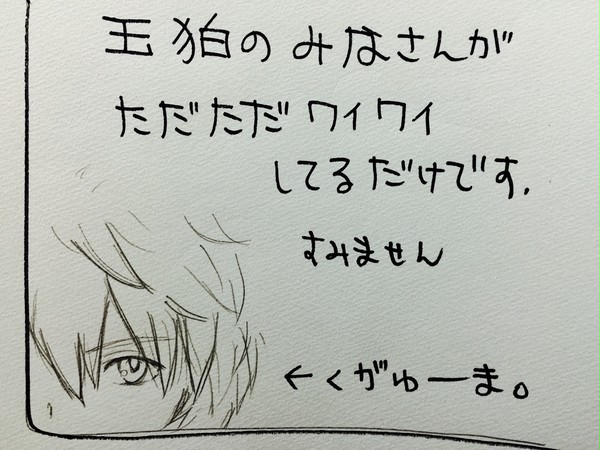 玉狛のみなさんが
ただただワイワイ
してるだけです.
すみません
←くがゅーま。